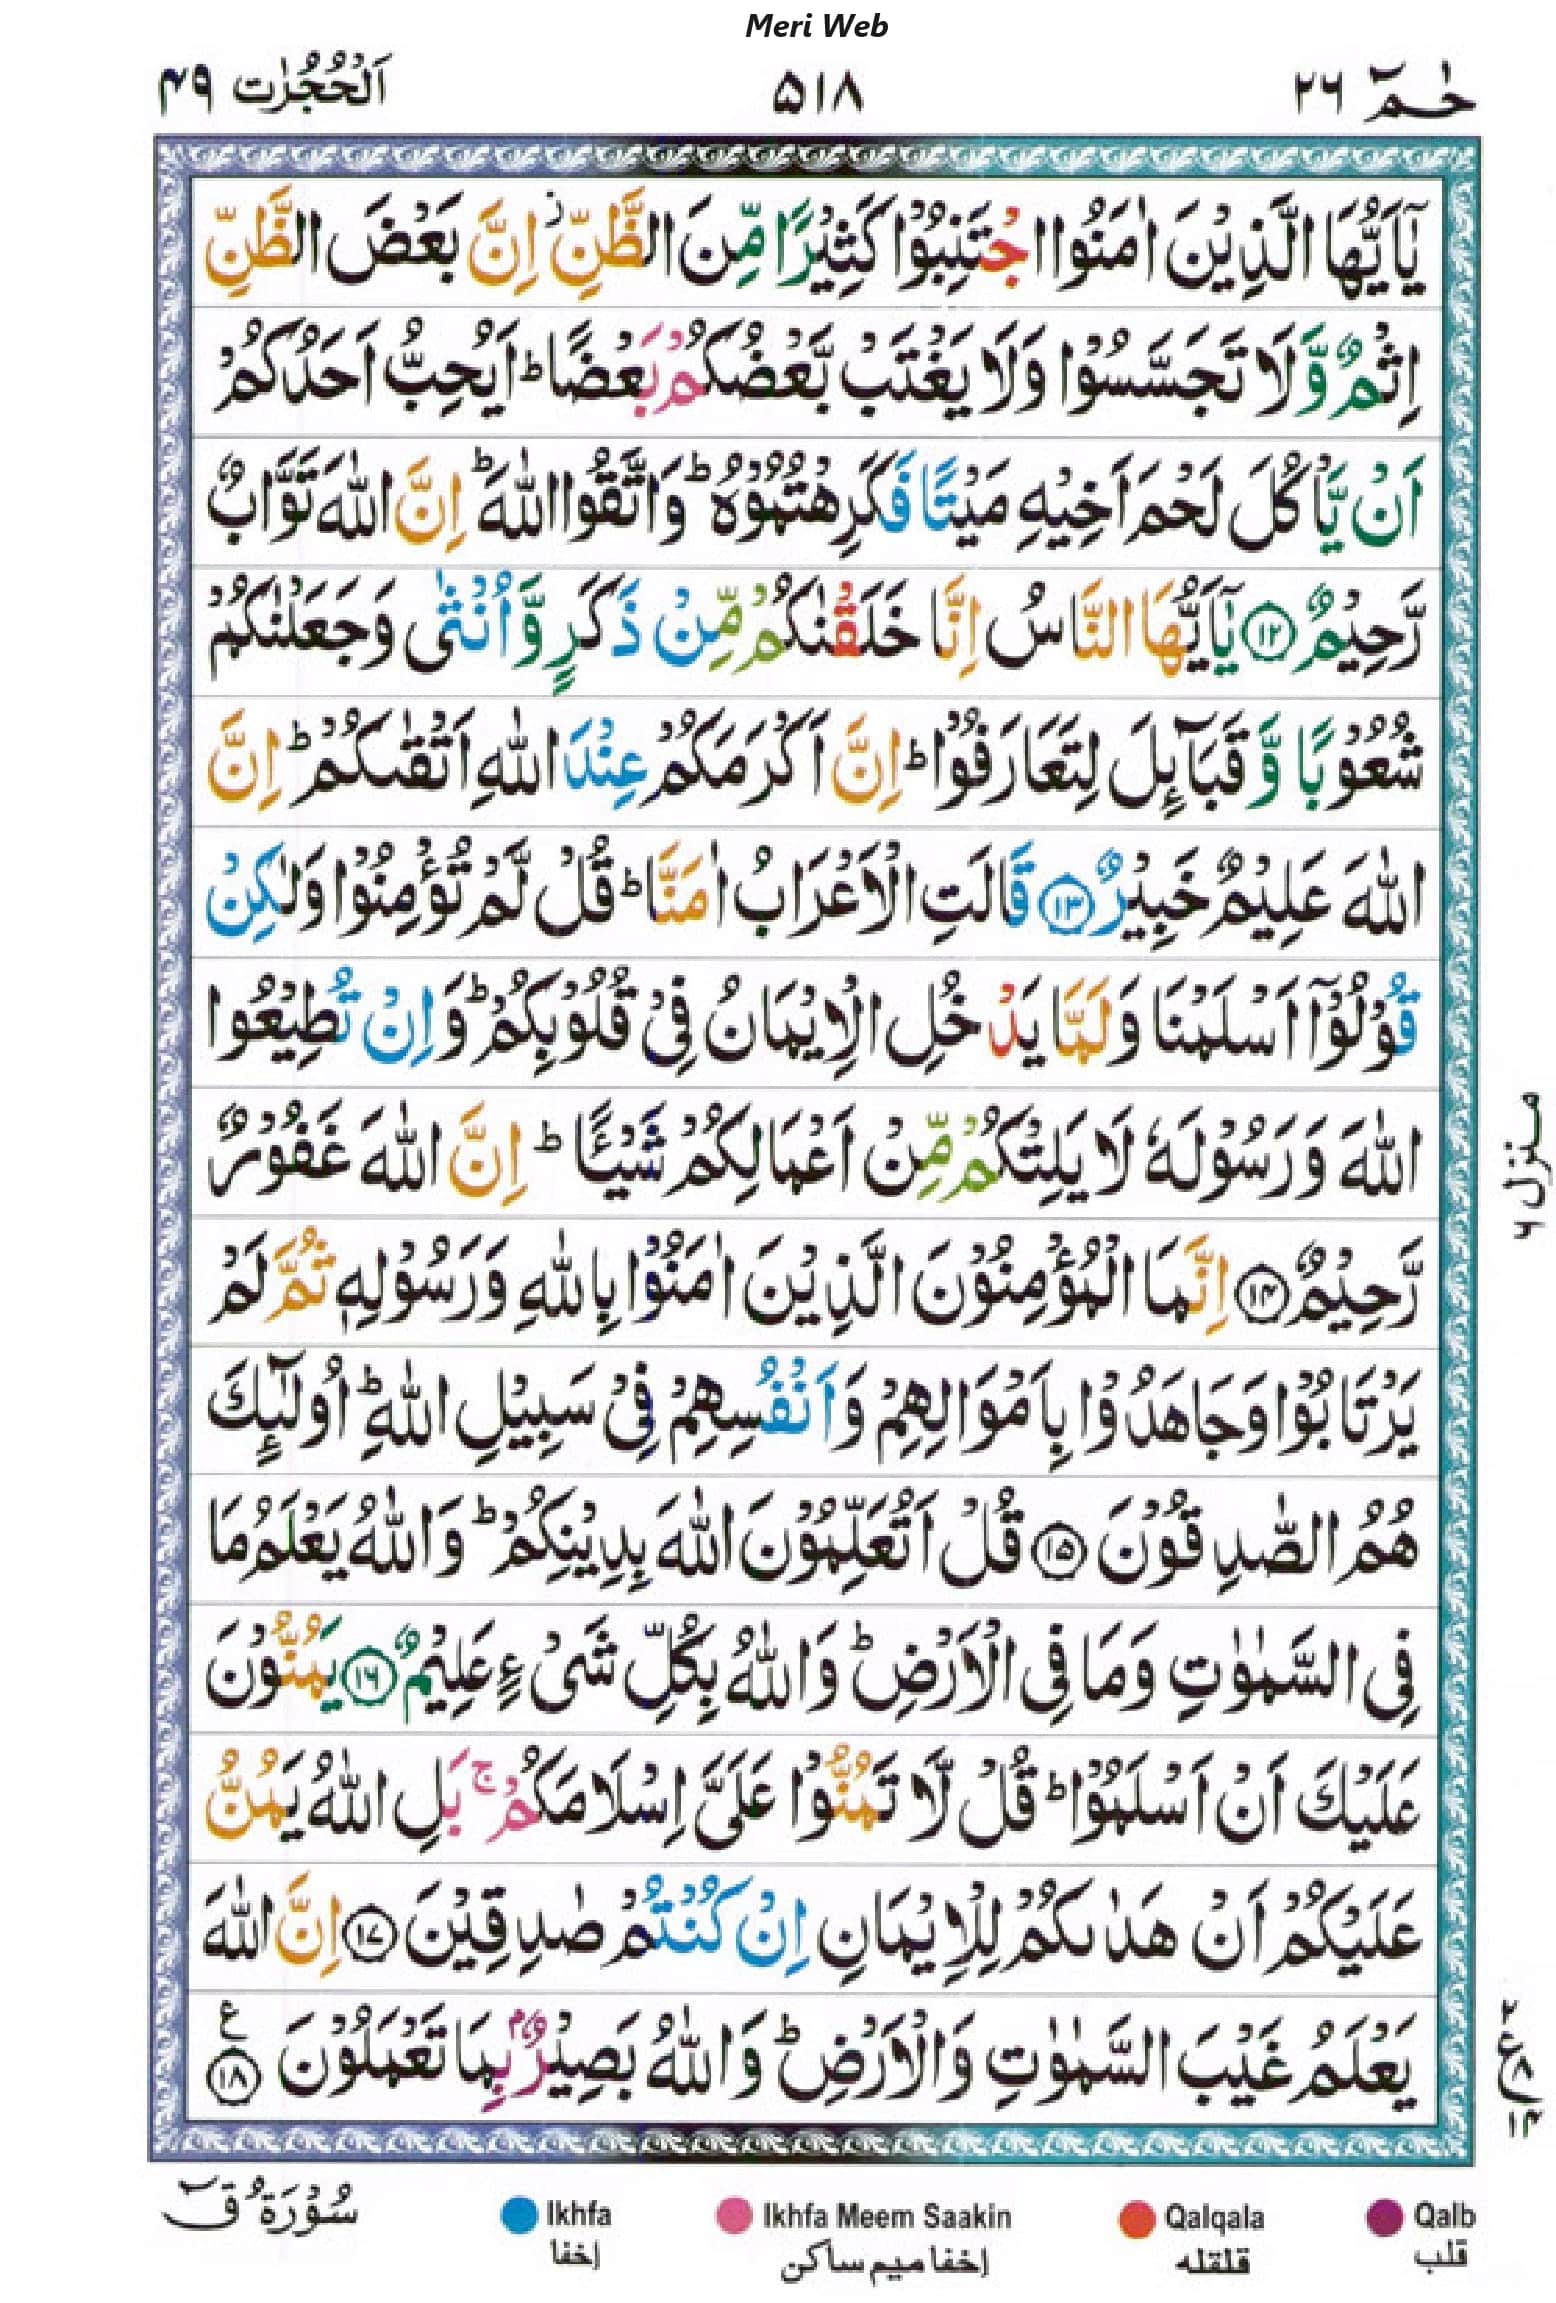 Meri Web
حٰمٓ ٢٦
٥١٨
اَلْحُجُرٰت ٤٩
يٰٓاَيُّهَا الَّذِيْنَ اٰمَنُوا اجْتَنِبُوْا كَثِيْرًا مِّنَ الظَّنِّ ز اِنَّ بَعْضَ الظَّنِّ
اِثْمٌ وَّلَا تَجَسَّسُوْا وَلَا يَغْتَبْ بَّعْضُكُمْ بَعْضًا ؕ اَيُحِبُّ اَحَدُكُمْ
اَنْ يَّاْكُلَ لَحْمَ اَخِيْهِ مَيْتًا فَكَرِهْتُمُوْهُ ؕ وَاتَّقُوا اللّٰهَ ؕ اِنَّ اللّٰهَ تَوَّابٌ
رَّحِيْمٌ ﴿١٢﴾ يٰٓاَيُّهَا النَّاسُ اِنَّا خَلَقْنٰكُمْ مِّنْ ذَكَرٍ وَّاُنْثٰى وَجَعَلْنٰكُمْ
شُعُوْبًا وَّقَبَآئِلَ لِتَعَارَفُوْا ؕ اِنَّ اَكْرَمَكُمْ عِنْدَ اللّٰهِ اَتْقٰىكُمْ ؕ اِنَّ
اللّٰهَ عَلِيْمٌ خَبِيْرٌ ﴿١٣﴾ قَالَتِ الْاَعْرَابُ اٰمَنَّا ؕ قُلْ لَّمْ تُؤْمِنُوْا وَلٰكِنْ
قُوْلُوْٓا اَسْلَمْنَا وَلَمَّا يَدْخُلِ الْاِيْمَانُ فِيْ قُلُوْبِكُمْ ؕ وَاِنْ تُطِيْعُوا
اللّٰهَ وَرَسُوْلَهٗ لَا يَلِتْكُمْ مِّنْ اَعْمَالِكُمْ شَيْـًٔا ؕ اِنَّ اللّٰهَ غَفُوْرٌ
رَّحِيْمٌ ﴿١٤﴾ اِنَّمَا الْمُؤْمِنُوْنَ الَّذِيْنَ اٰمَنُوْا بِاللّٰهِ وَرَسُوْلِهٖ ثُمَّ لَمْ
يَرْتَابُوْا وَجَاهَدُوْا بِاَمْوَالِهِمْ وَاَنْفُسِهِمْ فِيْ سَبِيْلِ اللّٰهِ ؕ اُولٰٓئِكَ
هُمُ الصّٰدِقُوْنَ ﴿١٥﴾ قُلْ اَتُعَلِّمُوْنَ اللّٰهَ بِدِيْنِكُمْ ؕ وَاللّٰهُ يَعْلَمُ مَا
فِى السَّمٰوٰتِ وَمَا فِى الْاَرْضِ ؕ وَاللّٰهُ بِكُلِّ شَىْءٍ عَلِيْمٌ ﴿١٦﴾ يَمُنُّوْنَ
عَلَيْكَ اَنْ اَسْلَمُوْا ؕ قُلْ لَّا تَمُنُّوْا عَلَىَّ اِسْلَامَكُمْ ۚ بَلِ اللّٰهُ يَمُنُّ
عَلَيْكُمْ اَنْ هَدٰىكُمْ لِلْاِيْمَانِ اِنْ كُنْتُمْ صٰدِقِيْنَ ﴿١٧﴾ اِنَّ اللّٰهَ
يَعْلَمُ غَيْبَ السَّمٰوٰتِ وَالْاَرْضِ ؕ وَاللّٰهُ بَصِيْرٌۢ بِمَا تَعْمَلُوْنَ ﴿١٨﴾ ع
منزل ٦
٢
ع ٨
١٤
سُوْرَةُ قٓ
Ikhfa
Ikhfa Meem Saakin
Qalqala
Qalb
إخفا
إخفا ميم ساكن
قلقله
قلب